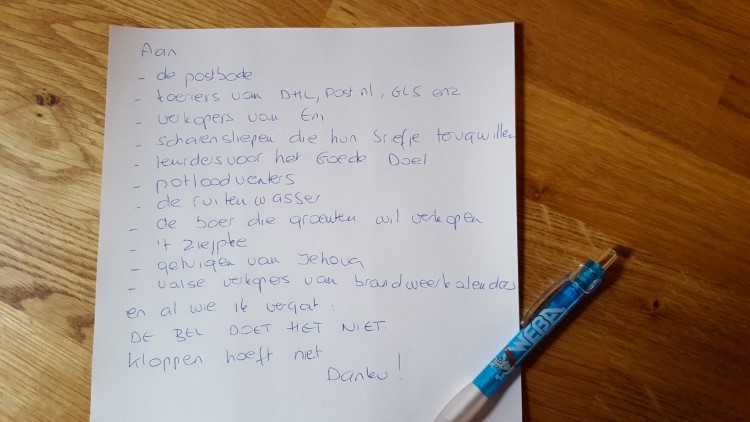 Aan
- de postbode
- koeriers van DHL, Post nl, GLS enz
- verkopers van Eni
- scharensliepen die hun briefje terugwillen
- leurders voor het Goede Doel
- potloodventers
- de ruitenwasser
- de boer die groenten wil verkopen
- 't ziepke
- getuigen van Jehova
- valse verkopers van brandweerkalenders
en al wie ik vergat:
DE BEL DOET HET NIET.
Kloppen hoeft niet
Danku!
WEBA